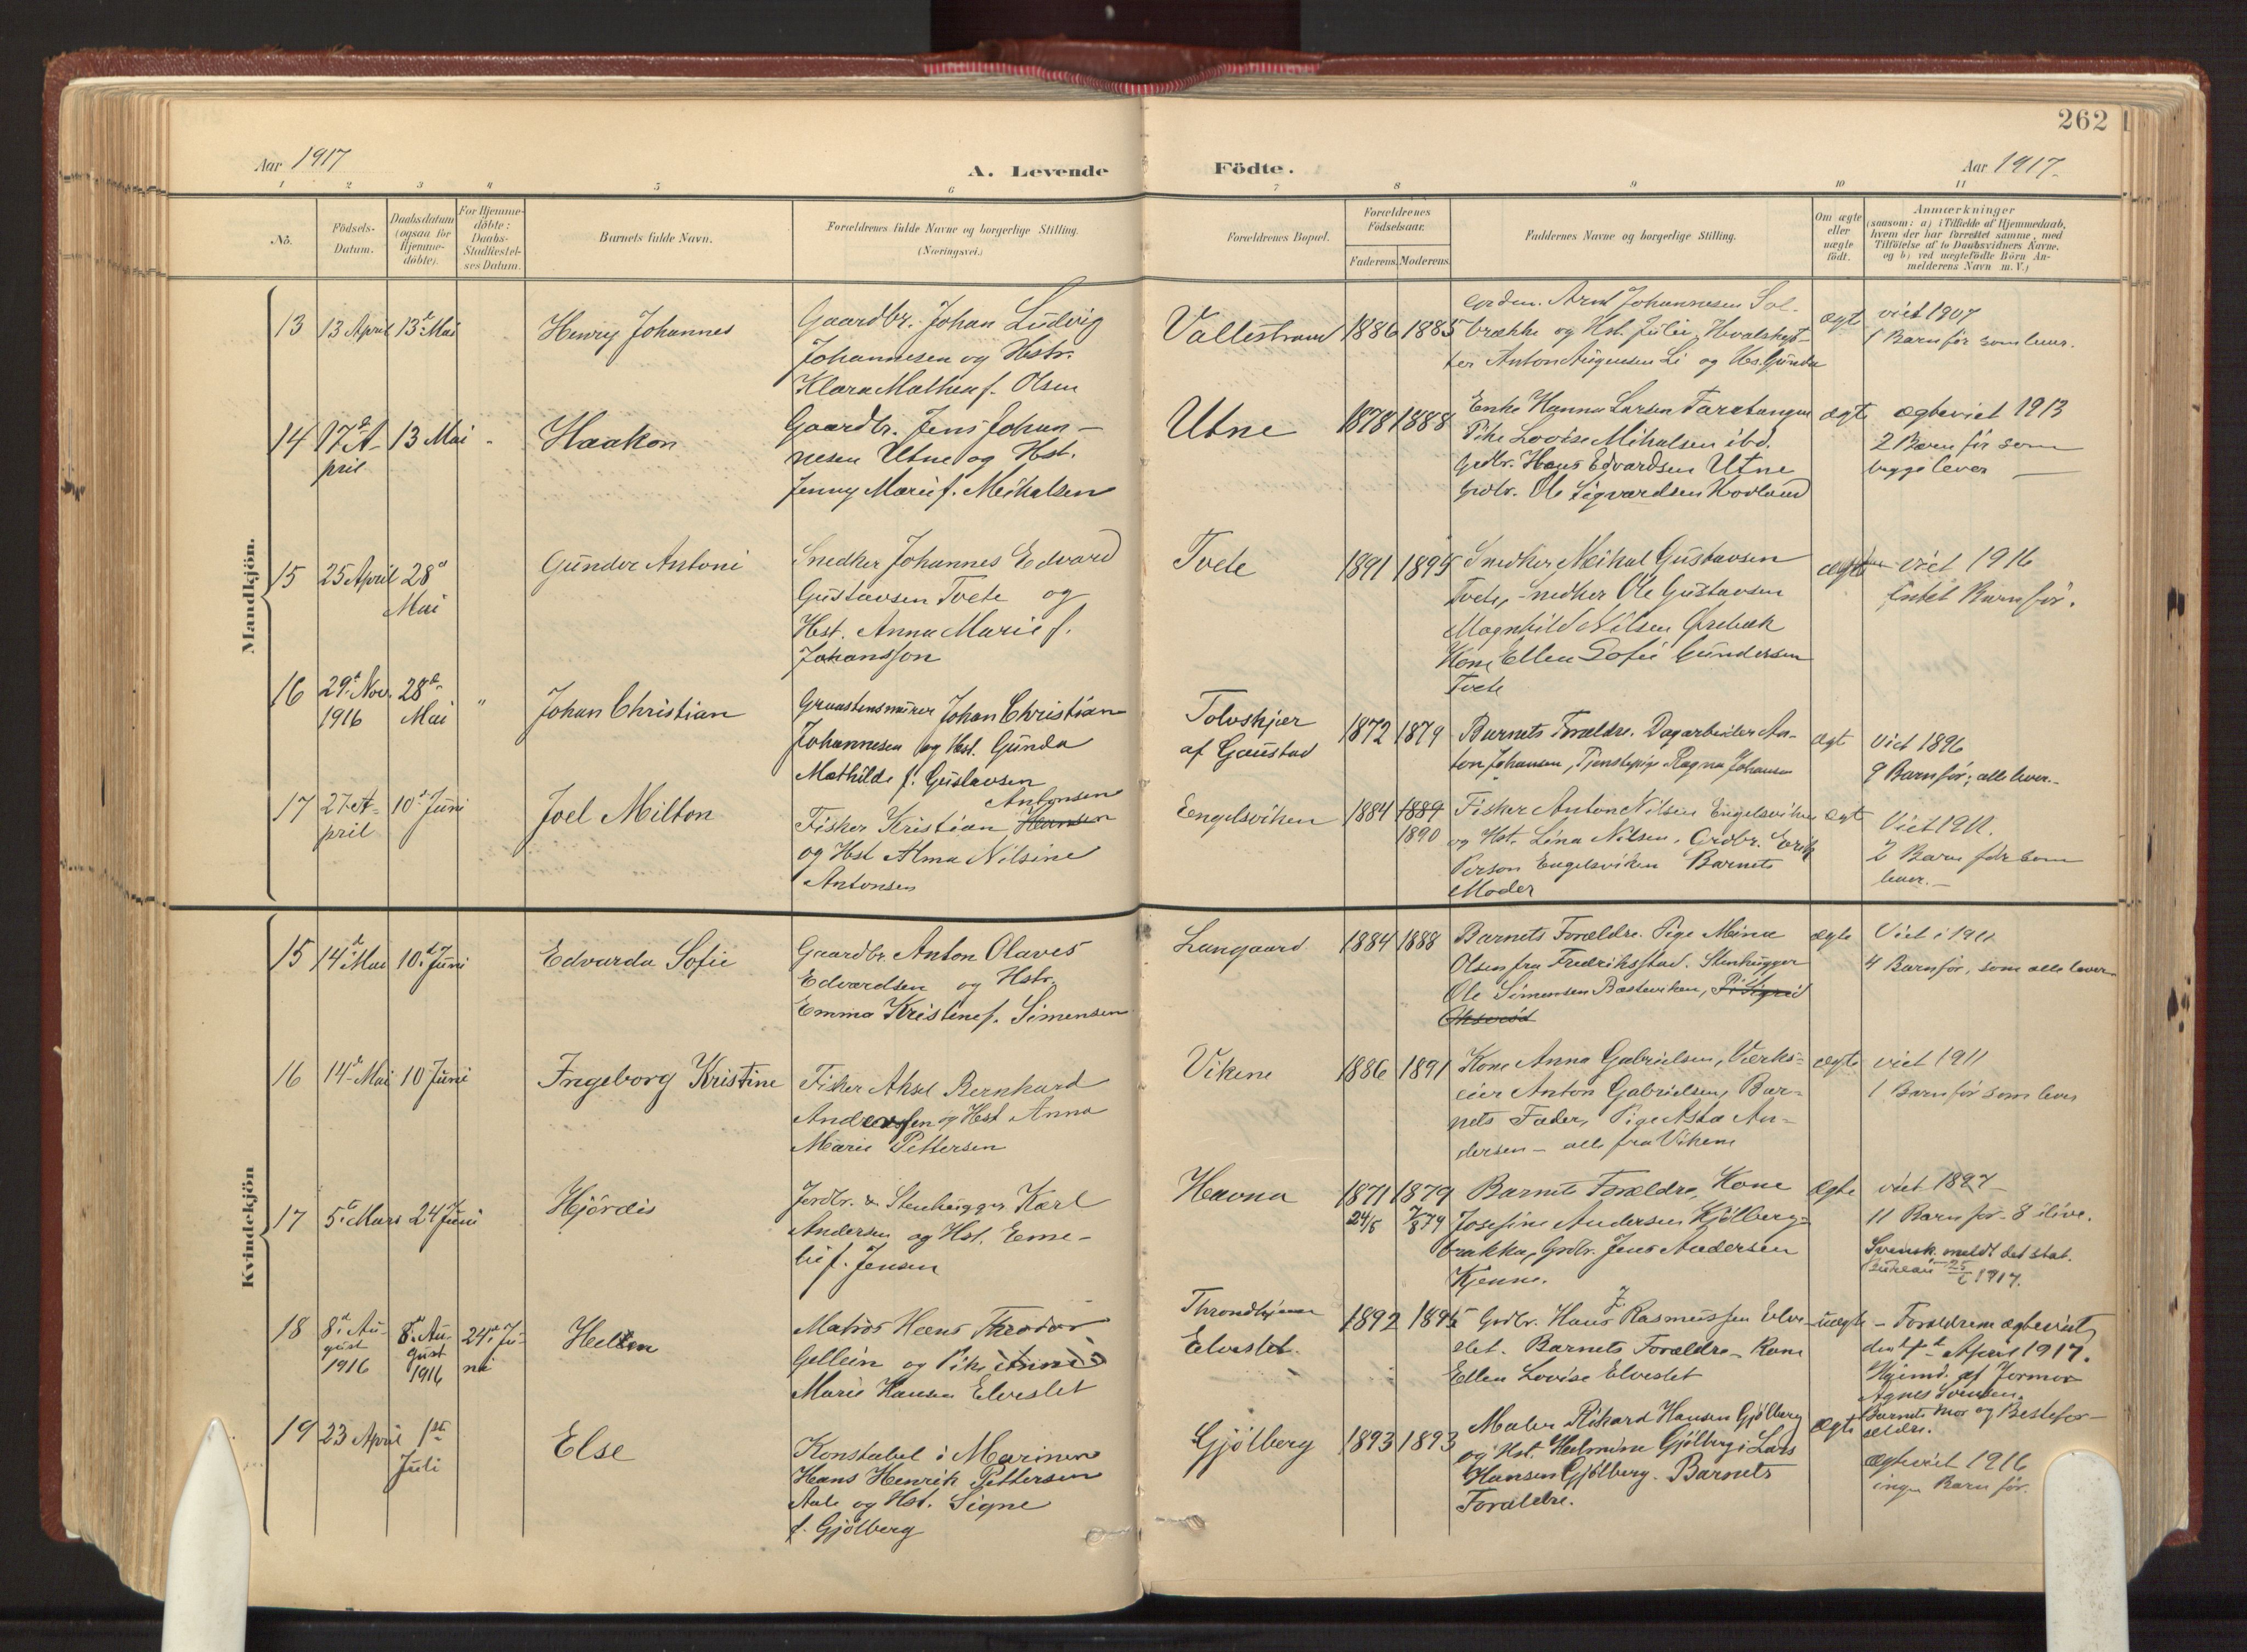 262
Aar 1917
A. Levende Födte.
Aar 1917.
1 2 3 4 5 6 7 8 9 10 11
No.
Födsels-
Datum.
Daabsdatum
(ogsaa for
Hjemme-
döbte).
For Hjemme-
döbte:
Daabs-
Stadfæstel-
ses Datum.
Barnets fulde Navn.
Forældrenes fulde Navne og borgerlige Stilling.
(Næringsvei.)
Forældrenes Bopæl.
Forældrenes
Födselsaar.
Faderens. Moderens.
Faddernes Navne og borgerlige Stilling.
Om ægte
eller
uægte
födt.
Anmærkninger
(saasom: a) i Tilfælde af Hjemmedaab,
hvem der har forrettet samme, med
Tilföielse af to Daabsvidners Navne,
og b) ved uegtefödte Börn An-
melderens Navn m. V.)
Mandkjön.
13 13 April 13d Mai
Henry Johannes
Gaardbr. Johan Ludvig
Johannesen og Hstr.
Klara Mathea f. Olsen
Vallestrand 1886 1885
Johannesen Sol-
brække og Hst. Julie,
ter Anton Li og Hs. Gunda
ægte
viet 1907
1 Barn för som lever.
14 17d A-
pril
13 Mai "
Haakon
Gaardbr. Jens Johan-
nesen Utne og Hst.
Jenny Marie f. Meikalsen
Utne 1878 1888
Enke Hanna Larsen Taratangen
Pike Lovise Mikalsen ibd.
Grdbr. Hans Edvardsen Utne
Grdbr. Ole Sigvardsen Hovland
ægte
ægteviet 1913
2 Barn för som
begge lever —
15 25 April 28d
Mai
Gunder Antoni
Snedker Johannes Edvard
Gustavsen Tvete og
Hst. Anna Marie f.
Johansson
Tvete 1891 1895
Snedker Meikal Gustavsen
Tvete, Snedker Ole Gustavsen
Magnhild Nilsen Ørebæk
Kone Ellen Sofie Gundersen
Tvete
ægte
viet 1916
Intet Barn för.
16 29d Nov.
1916
28d
Mai "
Johan Christian
Graastensmurer Johan Christian
Johannesen og Hst. Gunda
Mathilde f. Gustavsen
Tolvskjær
af Gaustad
1872 1879
Barnets Forældre. Dagarbeider An-
ton Johansen, Tjenstepige Ragna Johansen
ægte
Viet 1896
9 Barn för; alle lever.
17 27 A-
pril
10d Juni
Joel Milton
Antonsen
Fisker Kristian Hansen
og Hst Alma Nilsine
Antonsen
Engelsviken 1884 1889
1890
Fisker Anton Nilsen Engelsviken
og Hst. Lina Nilsen, Grdbr. Erik
Person Engelsviken Barnets
Moder
ægte
Viet 1911.
2 Barn för som
lever. —
Kvindekjön
15 14d Mai 10d Juni
Edvarda Sofie
Gaardbr. Anton Olaves
Edvardsen og Hstr.
Emma Kristine f. Simensen
Langaard 1884 1888
Barnets Forældre. Pige Meina
Olsen fra Fredriksstad. Stenhugger
Ole Simensen Bæsteviken,
ægte
Viet i 1911
4 Barn för, som alle lever
16 14d Mai 10 Juni
Ingeborg Kristine
Fisker Aksel Bernhard
Andersen og Hst Anna
Marie Pettersen
Vikene 1886 1891
Kone Anna Gabrielsen, Værks-
eier Anton Gabrielsen, Bar-
nets Fader, Pige Asta An-
dersen — alle fra Vikene
ægte
viet 1911
1 Barn för som lever
17 5d Mars 24 Juni
Hjördis
Jordbr. & Stenhugger Karl
Andersen og Hst. Eme-
lie f. Jensen
Havna 1871 1879
24/5
Barnets Forældre, Kone
Josefine Andersen Kjölberg-
brækka, Grdbr. Jens Andersen
Kjenne.
Ægte
viet 1897
11 Barn för - 8 ilive.
Svensk. meldt det stat.
bureau 25/6 1917.
18 8d Au-
gust
1916
8d Au-
gust
1916
24d Ju-
ni
Helen
Matros Hans Theodor
Gellein og Pike
Marie Hansen Elveslet
Throndhjem
Elveslet.
1892 1895
Grdbr. Hans J. Rasmussen Elve-
slet. Barnets Forældre - Kone
Ellen Lovise Elveslet
uægte
- Forældrene ægteviet
den 4d April 1917.
Hjemd. af Jormor
Agnes Svensen.
Barnets mor og Bestefor-
ældre.
19 23 April 1ste
Juli
Else
Konstabel i Marinen
Hans Henrik Pettersen
Aale og Hst. Signe
f. Gjölberg
Gjölberg 1893 1893
Maler Rikard Hansen Gjölberg
og Hst. Helmine Gjölberg, Lars
Hansen Gjölberg. Barnets
Forældre.
Ægte
ægteviet 1916
ingen Barn för.